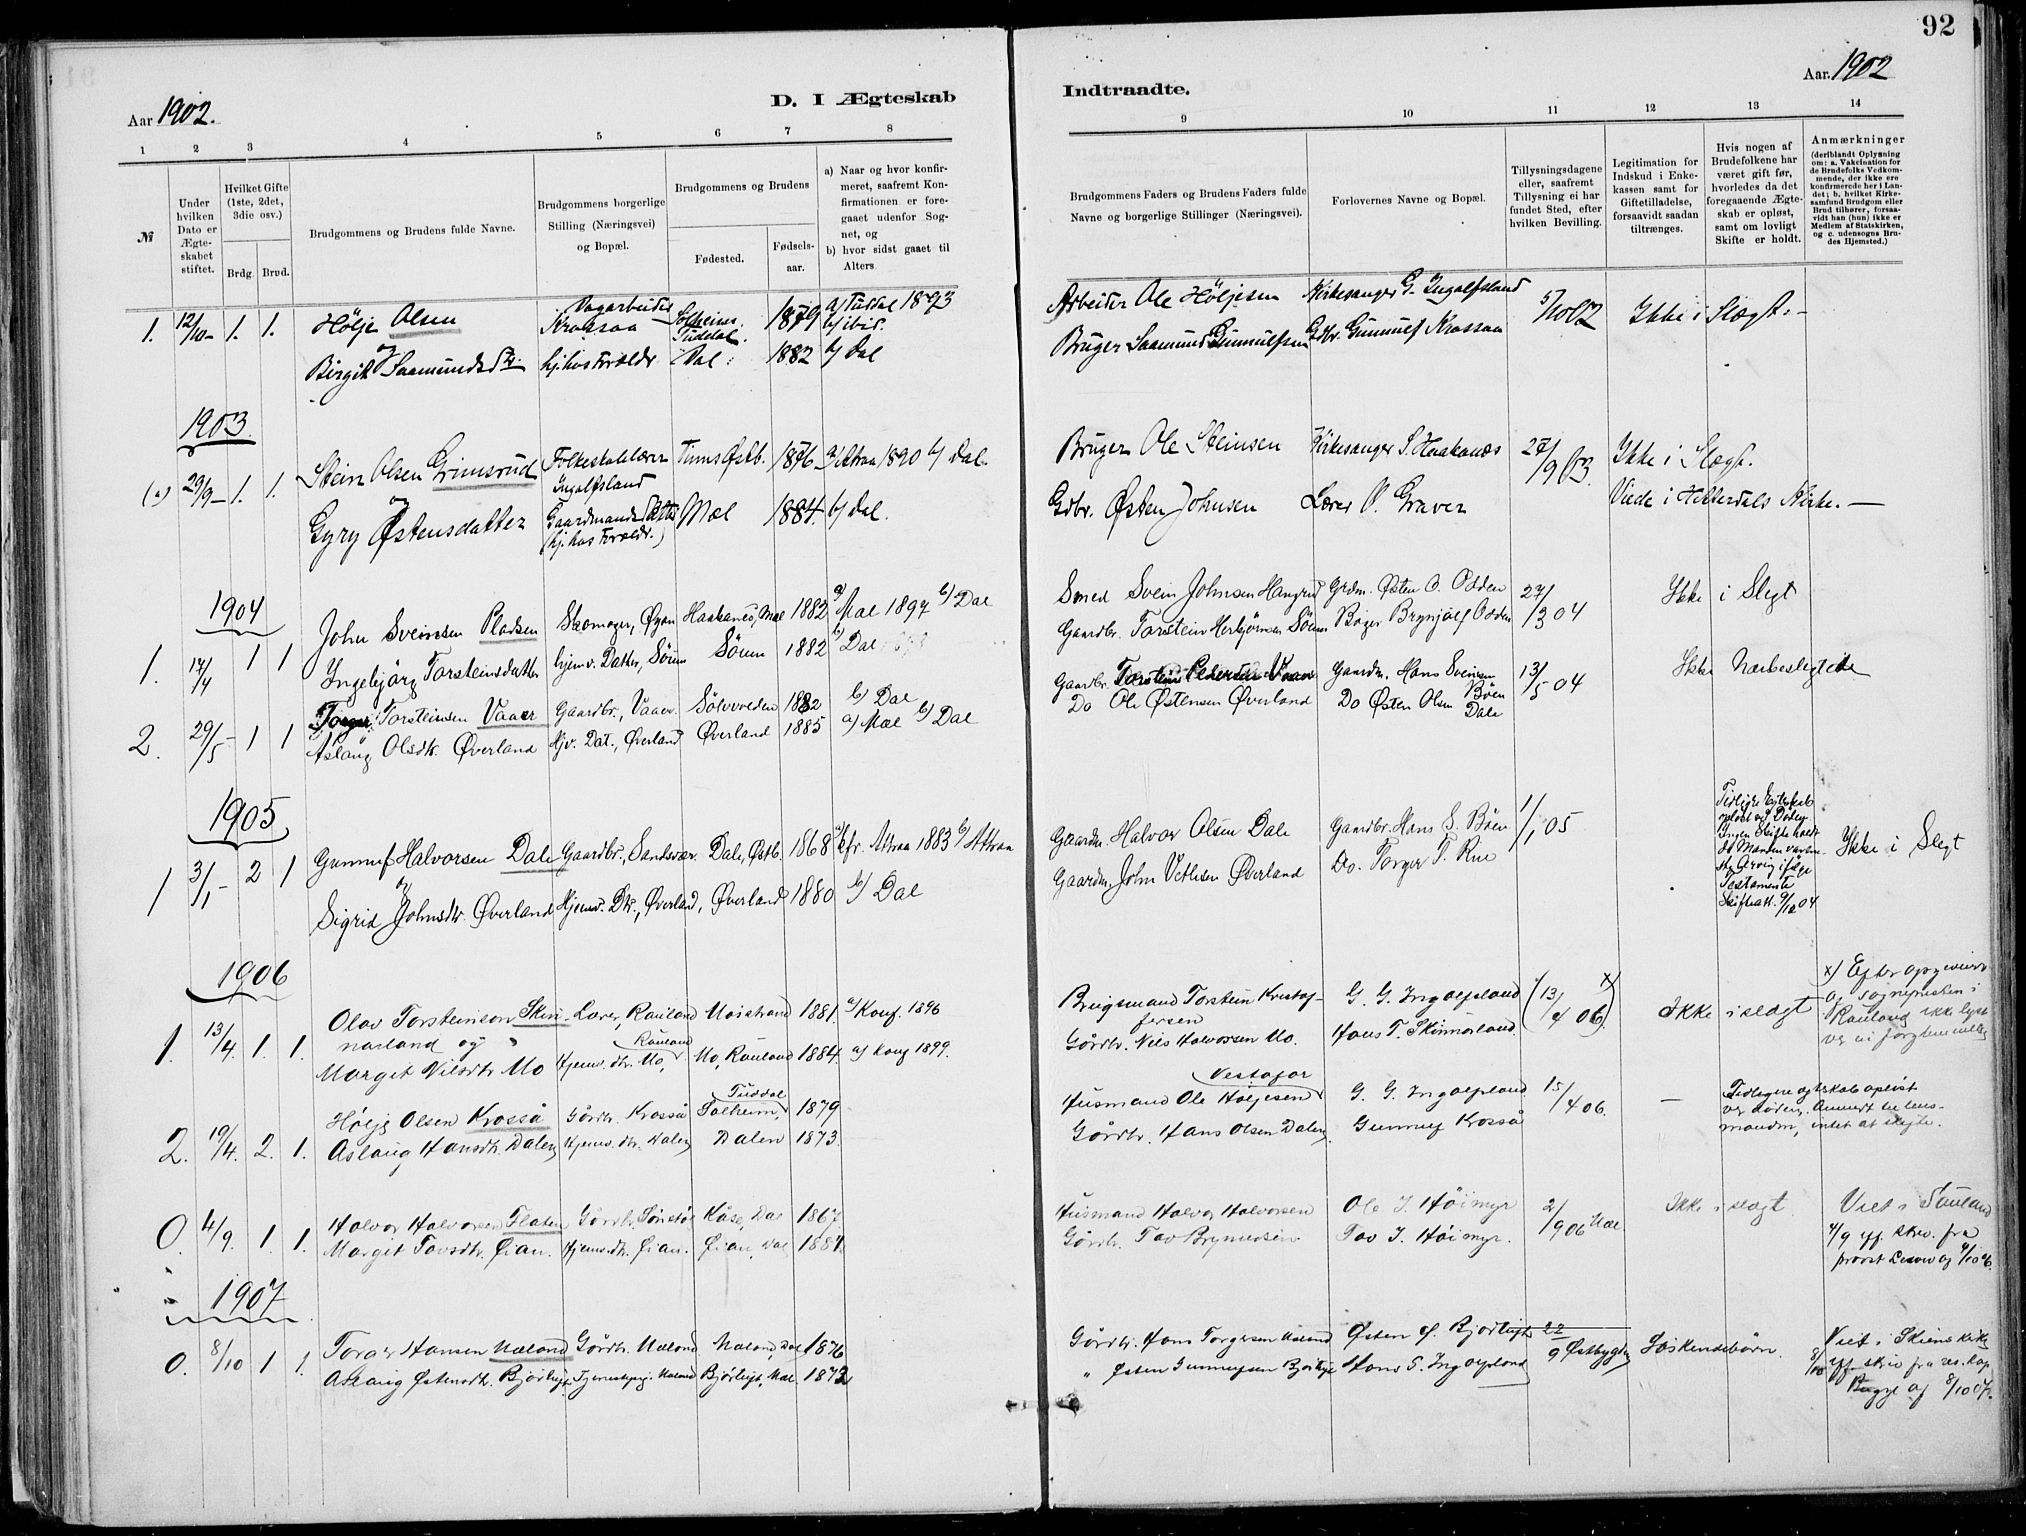 92
Aar 1902.
D. I Ægteskab
Indtraadte.
Aar 1902
1 2 3 4 5 6 7 8
9 10 11 12 13 14
№
Under hvilken Dato er Ægteskabet stiftet.
Hvilket Gifte (1ste, 2det, 3die osv.)
Brdg. Brud.
Brudgommens og Brudens fulde Navne.
Brudgommens borgerlige Stilling (Næringsvei) og Bopæl.
Brudgommens og Brudens
Fødested.
Fødselsaar.
a) Naar og hvor konfirmeret, saafremt Konfirmationen er foregaaet udenfor Sognet, og
b) hvor sidst gaaet til Alters
Brudgommens Faders og Brudens Faders fulde Navne og borgerlige Stillinger (Næringsvei).
Forlovernes Navne og Bopæl.
Tillysningsdagene eller, saafremt Tillysning ei har fundet Sted, efter hvilken Bevilling.
Legitimation for Indskud i Enkekassen samt for Giftetilladelse, forsaavidt saadan tiltrænges.
Hvis nogen af Brudefolkene har været gift før, hvorledes da det foregaaende Ægteskab er opløst, samt om lovligt Skifte er holdt.
Anmærkninger
(deriblandt Oplysning om: a. Vakcination for de Brudefolks Vedkommende, der ikke ere konfirmerede her i Landet; b. hvilket Kirkesamfund Brudgom eller Brud tilhører, forsaavidt han (hun) ikke er Medlem af Statskirken, og c. udensogns Brudes Hjemsted.)
1. 12/10 - 1. 1. Hölje Olsen Krossaa Solheim, Tuddal. 1879 a/ Tuddal 1893 b/ ibid. Arbeider Ole Höljesen Kirkesanger G. Ingolfsland 5/10 02 Ikke i Slægt. -
og Birgit Saamundsdtr. hj. hos Forældr. Dal. 1882 b/ Dal Bruger Saamund Gunnulfsen Gdbr. Gunnulf Krossaa
1903.
(a) 29/9 - 1. 1. Stein Olsen Grimsrud Folkeskolelærer Ingolfsland Tinns Østb. 1876 a/ Atraa 1890 b/ Dal. Bruger Ole Steinsen Kirkesanger S. Haakanæs 27/9 03. Ikke i Slægt.
og Gyry Østensdatter Gaardmandsdatter (hj. hos Foræld.) Mæl 1884. b/ Dal. Gdbr. Østen Johnsen Lærer O. Graver Viede i Hitterdals Kirke. -
1904
1. 17/4 1 1 John Sveinsen Pladsen Skomager, Øyan Haakanes, Mæl 1882 a/ Mæl 1897 b/ Dal Smed Svein Johnsen Grdm. Østen O. Odden 27/3 04 Ikke i Slegt
Ingebjörg Torsteinsdatter hjemv. Datter, Sörum Sörum 1882 b/ Dal Gaardbr. Torstein Herbjörnsen Sörum Brynjolf Odden
2. 29/5 - 1 1 Torger Torsteinsen Vaaer Gaardbr., Vaaer. 1882 b/ Dal Gaardbr. Torstein Pedersen Vaaer Gaardm. Hans Sveinsen Böen 13/5 04 Ikke Nærbeslegtede
Aslaug Olsdtr. Øverland Hjv. Dat., Øverland Øverland 1885 a/ Mæl b/ Dal Do Ole Østensen Øverland Do Østen Olsen Dale
1905
1 3/1 - 2 1 Gunnuf Halvorsen Dale Gaardbr., Sandsvær. Dale, Østb. 1868 a/ kfr. Attraa 1883 b/ Attraa Gaardm. Halvor Olsen Dale Gaardbr. Hans S. Böen 1/1 05 Ikke i Slegt
Tidligere Egteskab opløst ved Døden Ingen Skifte holdt da Manden var eneste Arving ifølge Testamente Skifteatt. 9/12 04
og Sigrid Johnsdtr. Øverland Hjemv. Dtr., Øverland, Øverland 1880 b/ Dal Gaardm. John Vetlesen Øverland Do. Torger T. Rue
1906
1. 13/4. 1. 1. Olav Torsteinson Skinnarland og Lærer, Rauland Møistrand 1881. a/ Konf. 1896 Brugsmand Torstein Kristofersen G. G. Ingolfsland (13/4 06.) x) Ikke i slægt
Marget Nilsdtr Mo Hjemv. dtr. Mo, Rauland Mo, Rauland 1884. a/ Konf 1899. Gårdbr. Nils Halvorsen Mo. Hans T. Skinnarland.
x) Efter opgivende av sognepresten i Rauland ikke lyst
2. 19/4. 2. 1. Hölje Olsen Krosså Gårdbr. Krosså Tuddal Solheim, 1879 Husmand Ole Höljesen G. G. Ingolfsland 15/4 06. -
Aslaug Hansdtr. Dalen Hjemv. dtr. Dalen Dalen 1873. Gårdbr. Hans Olsen Dalen Gunnuf Krosså
Tidligere ægteskab opløst ved døden. Anmeldt til lensmanden, intet at skifte.
0. 4/9. 1. 1. Halvor Halvorsen Flaten Gårdbr. Kåse, Dal 1867. Husmand Halvor Halvorsen Ole J. Höimyr 2/9 06 Mæl Ikke i slægt.
Margit Tovsdtr. Øian. Hjemv. dtr. Øian. Øian, Dal 1887. Gårdbr. Tov Brynulvsen Tov J. Höimyr.
Viet i Sauland 4/9 iflg. skriv. fra provst
1907
0. 8/10 1 1. Torger Hansen Mæland Gårdbr. Mæland Mæland, Dal 1876 Gårdbr. Hans Torgersen Mæland Østen G. Bjørtigt 22/9 Østbygden Söskendebörn.
Aslaug Østensdtr. Bjørtigt Tjenestepig. Mæland Bjørtigt, Mæl 1873 " Østen Gunnufsen Hans S. Ingolfsland
Viet i Skiens kirke 8/10 iflg. skriv fra res. kap. Bugge af 8/10 07.